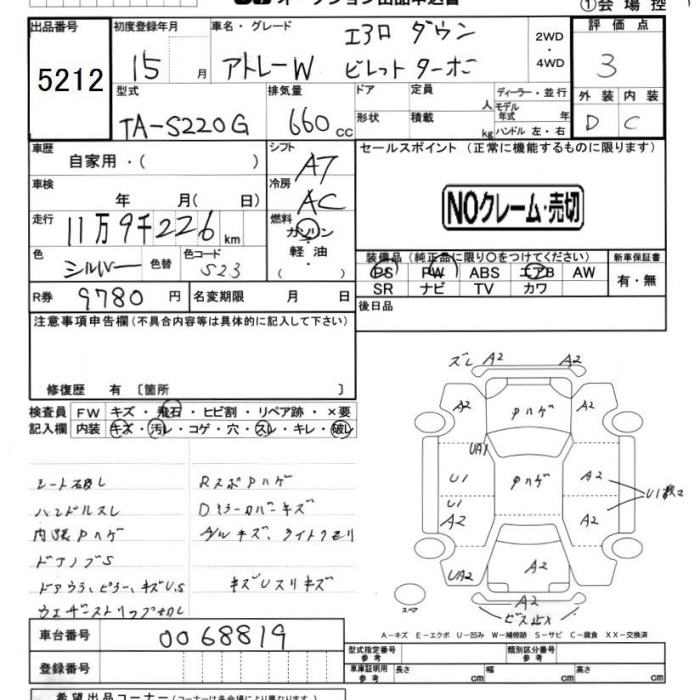 オークション出品申込書
①会場控
出品番号 初度登録年月 車名・グレード エアロ ダウン 2WD 評価点
5212 15 月 アトレーW ビレットターボ ・4WD 3
型式 排気量 ドア 定員 人 ディーラー・並行 外装 内装
TA-S220G 660 cc 形状 積載 kg モデル年式 年 D C
ハンドル 左・右
車歴 自家用・( ) シフト AT セールスポイント (正常に機能するものに限ります)
車検 年 月( 日) 冷房 AC
NOクレーム・売切
走行 11万9千226 km 燃料 ガソリン・軽油・( )
色 シルバー 色替 色コード S23
装備品 (純正品に限り○をつけてください) 新車保証書
PS PW ABS エアB AW 有・無
SR ナビ TV カワ
R券 9780 円 名変期限 月 日 後日品
注意事項申告欄(不具合内容等は具体的に記入して下さい)
修復歴 有 〔箇所 〕
検査員 FW キズ・飛石・ヒビ割・リペア跡・×要
記入欄 内装 キズ・汚レ・コゲ・穴・スレ・キレ・破レ
ズレ A2 A2
A2 Pハゲ A2
UA1
U1 Pハゲ A2
U1 U1
A2 A2
UA2 A2
A2
スペア
シート破レ RスポPハゲ
ハンドルスレ Dミラーカバーキズ
内張Pハゲ
ドアノブS
ドアウラ、ピラー、キズU,S キズUスリキズ
ウェザーストリップ切レ
A-キズ E-エクボ U-凹み W-補修跡 S-サビ C-腐食 XX-交換済
車台番号 0068819
型式指定番号 参考 類別区分番号 参考
登録番号
車庫証明用 参考 長さ cm 幅 cm 高さ cm
希望出品コーナー